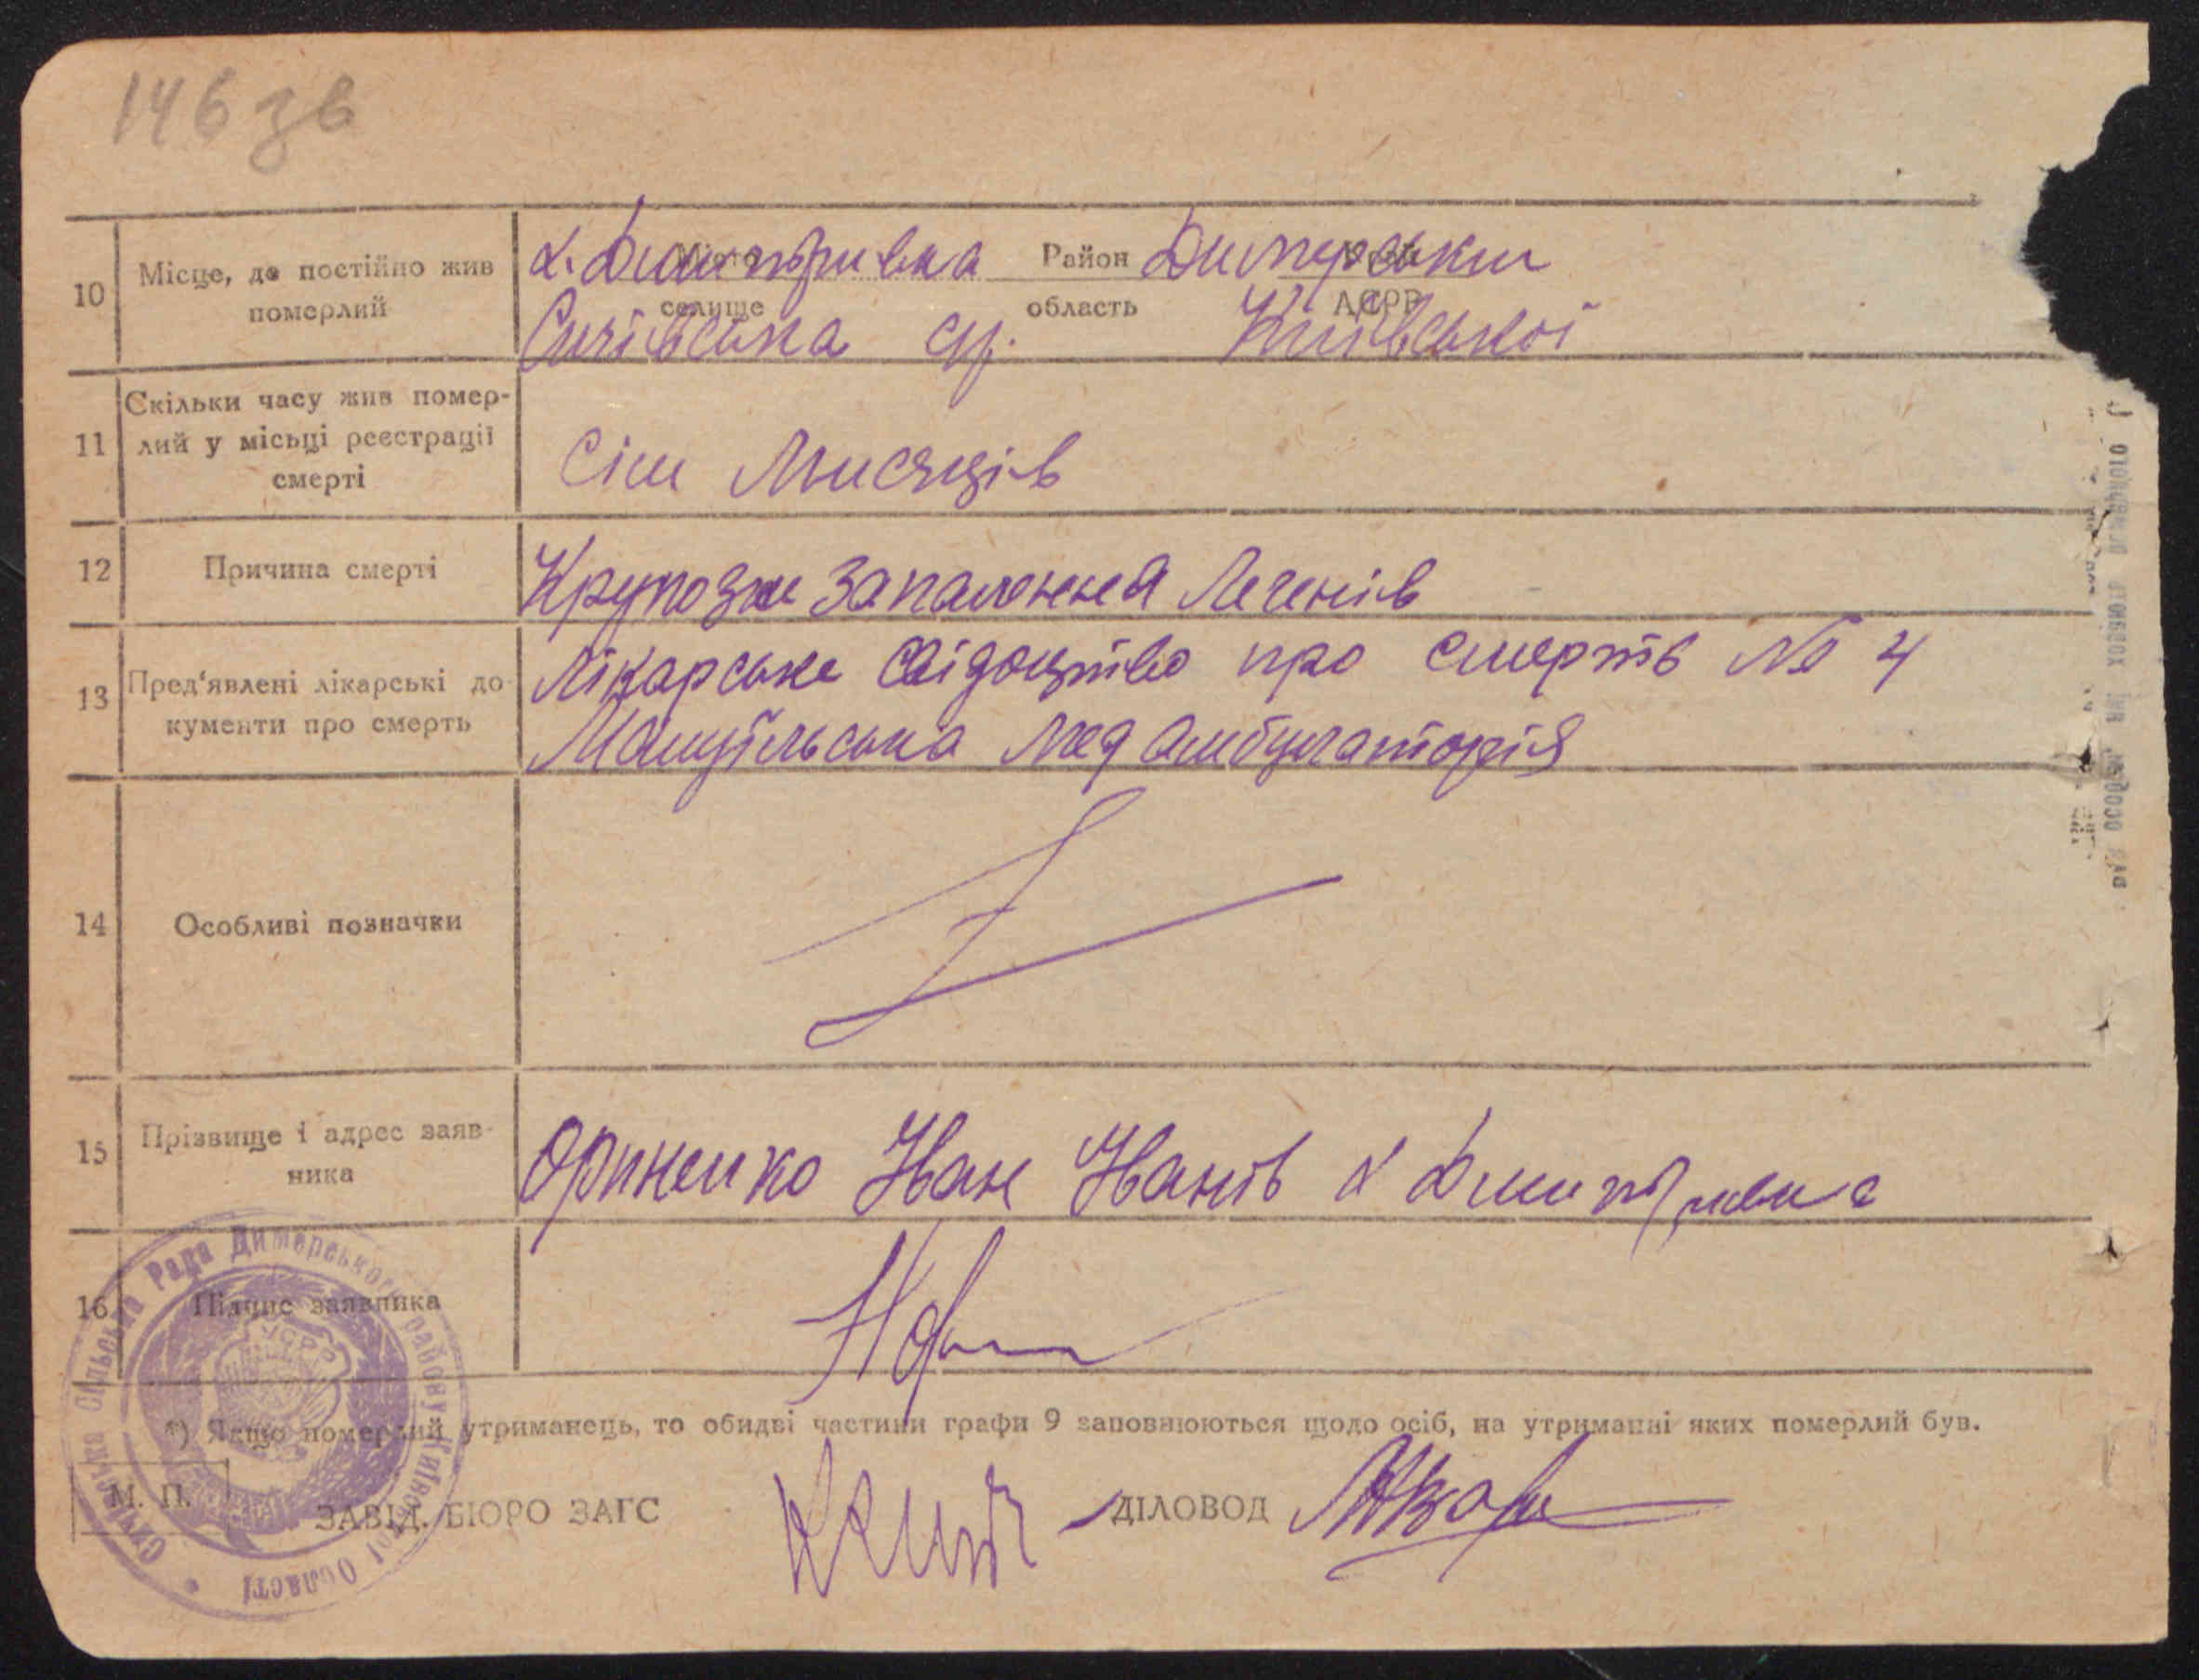 146 зв
10 Місце, де постійно жив х. Дмитрівка Район Димерськи
померлий селище область АСРР
Сичівська с/р. Київської
Скільки часу жив помер-
11 лий у місьці реєстрації Сім Мисяців
смерті
12 Причина смерті Крупозне Запалення Легенів
13 Пред'явлені лікарські до- Лікарське свідоцтво про смерть № 4
кументи про смерть медамбулаторія
14 Особливі позначки
15 Прізвище і адрес заяв- Іван Іванів х Дмитрівка
ника
16 Підпис заявника
*) Якщо померлий утриманець, то обидві частини графи 9 заповнюються щодо осіб, на утриманні яких померлий був.
М. П. ЗАВІД. БЮРО ЗАГС ДІЛОВОД
Сичівська Сільська Рада Димерського району Київської Області